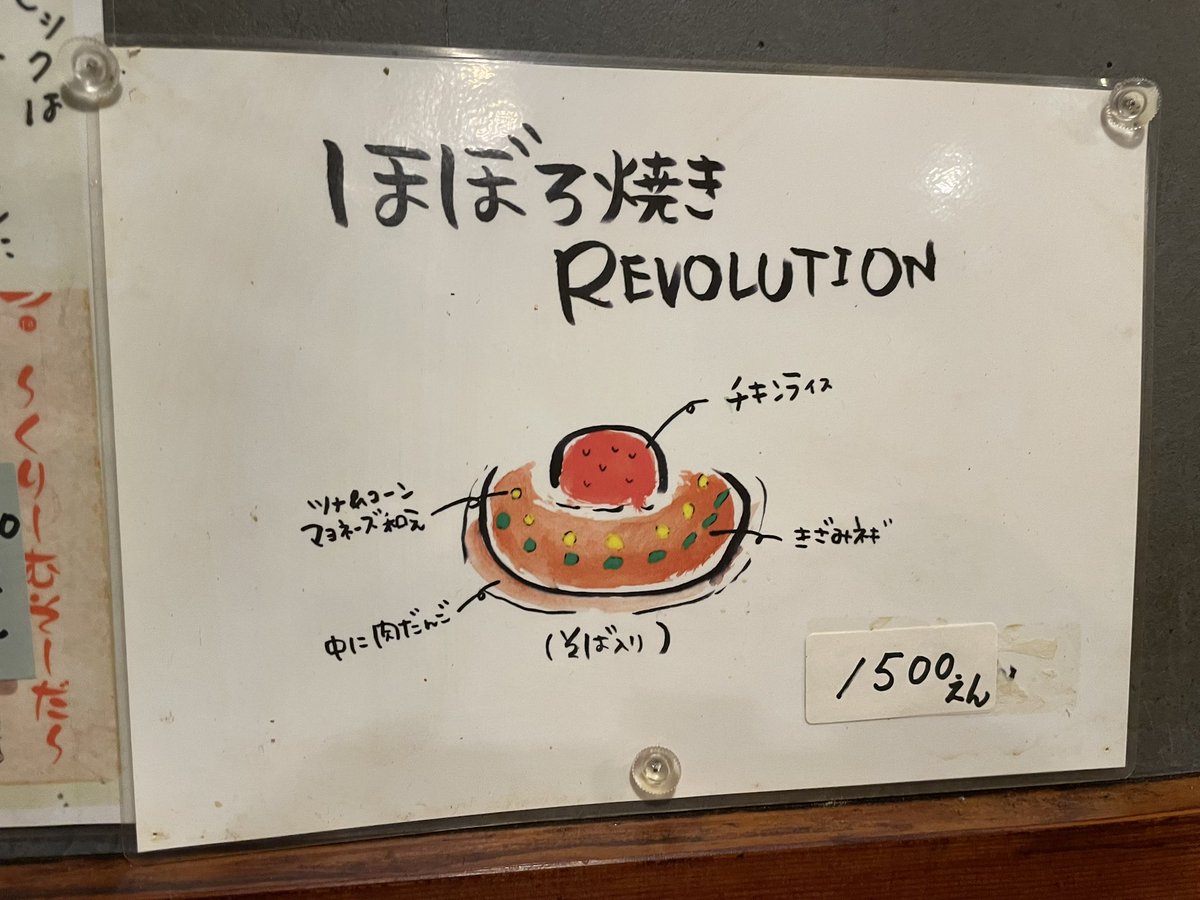 ほぼろ焼き
REVOLUTION
チキンライス
ツナ&コーン
マヨネーズ和え
きざみネギ
中に肉だんご
(そば入り)
1500えん
クは
〜くりーむそーだ〜